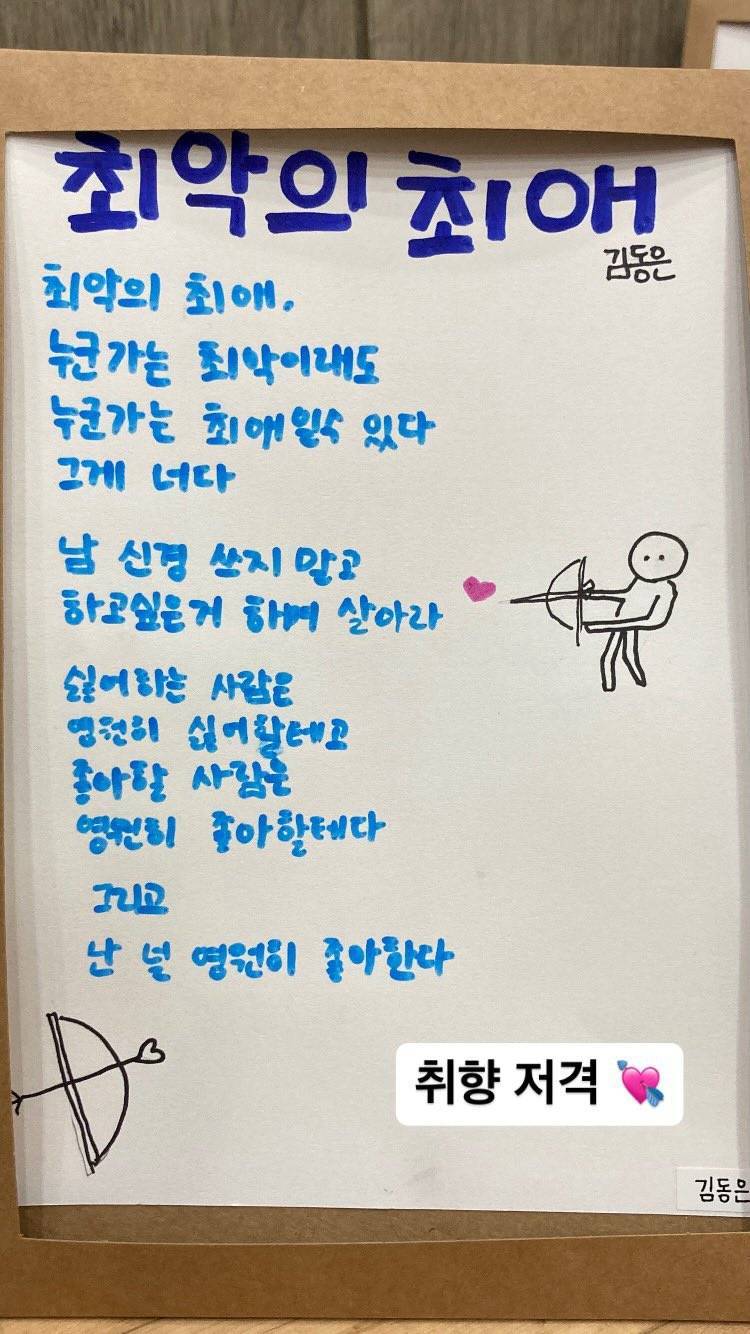 최악의 최애
김동은
최악의 최애.
누군가는 최악이래도
누군가는 최애일수 있다
그게 너다
남 신경 쓰지 말고
하고싶은거 하며 살아라
싫어하는 사람은
영원히 싫어할테고
좋아할 사람은
영원히 좋아할테다
그리고
난 널 영원히 좋아한다
취향 저격 💘
김동은